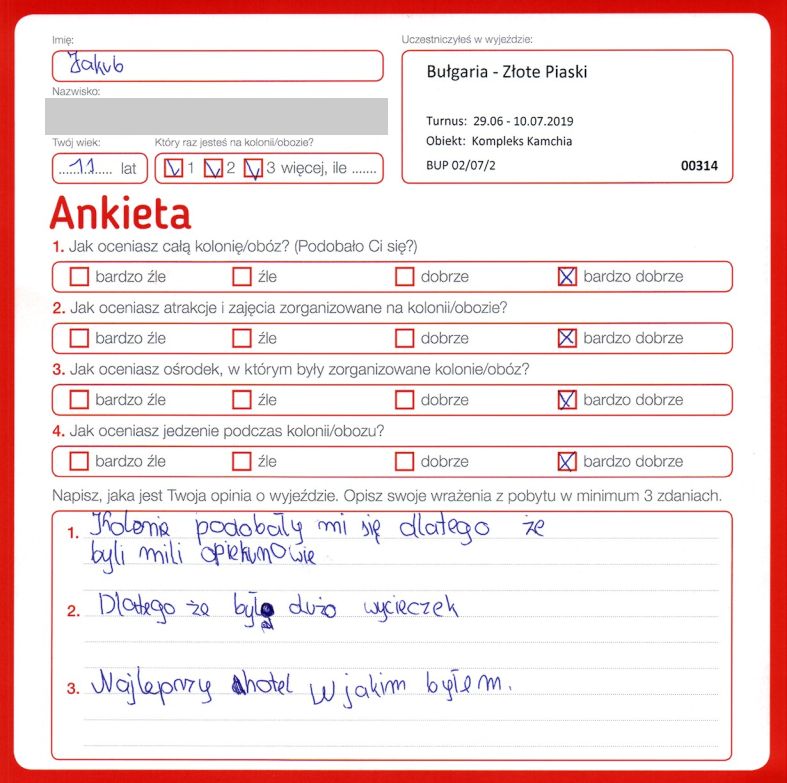 Imię:
Jakub
Uczestniczyłeś w wyjeździe:
Bułgaria - Złote Piaski
Turnus: 29.06 - 10.07.2019
Obiekt: Kompleks Kamchia
BUP 02/07/2
00314
Nazwisko:
Twój wiek:
11 lat
Który raz jesteś na kolonii/obozie?
1 2 3 więcej, ile .......
Ankieta
1. Jak oceniasz całą kolonię/obóz? (Podobało Ci się?)
bardzo źle źle dobrze bardzo dobrze
2. Jak oceniasz atrakcje i zajęcia zorganizowane na kolonii/obozie?
bardzo źle źle dobrze bardzo dobrze
3. Jak oceniasz ośrodek, w którym były zorganizowane kolonie/obóz?
bardzo źle źle dobrze bardzo dobrze
4. Jak oceniasz jedzenie podczas kolonii/obozu?
bardzo źle źle dobrze bardzo dobrze
Napisz, jaka jest Twoja opinia o wyjeździe. Opisz swoje wrażenia z pobytu w minimum 3 zdaniach.
1. Kolonie podobały mi się dlatego że
byli mili opiekunowie
2. Dlatego że było dużo wycieczek
3. Najleprzy hotel w jakim byłem.